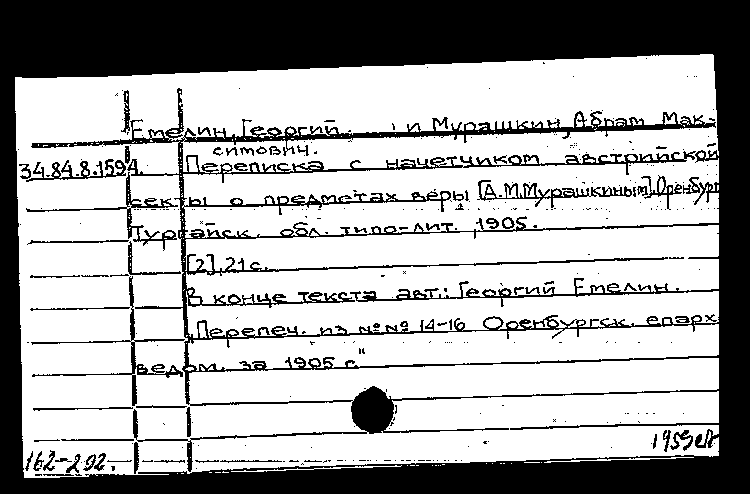 Емелин, Георгий и Мурашкин, Абрам Мак-
симович.
34.84.8.1594. Переписка с начетчиком австрийской
секты о предметах веры [А.М.Мурашкиным]. Оренбург
Тургайск. обл. типо-лит. ,1905.
[2], 21с.
В конце текста авт.: Георгий Емелин.
„Перепеч. из №№ 14-16 Оренбургск. епарх.
ведом. за 1905 г."
162-292.